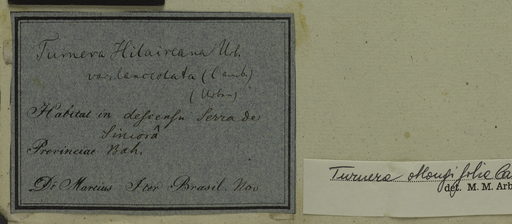 Turnera Hilaireana Urb.
var. lanceolata (Camb.)
(Urban)
Habitat in descensu Serra de
Sincorá
Provinciae Bah.
Dr Martius Iter Brasil. Nov
Turnera oblongifolia Ca
det. M. M. Arb